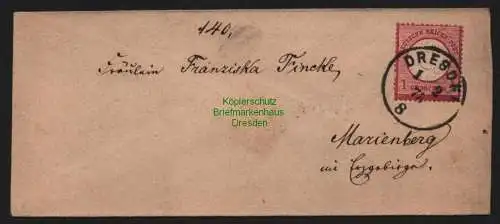 140,
Fräulein Franziska Finckh,
Marienberg
im Erzgebirge.
DEUTSCHE REICHS-POST
1
DRESDEN
8
Kopierschutz
Briefmarkenhaus
Dresden